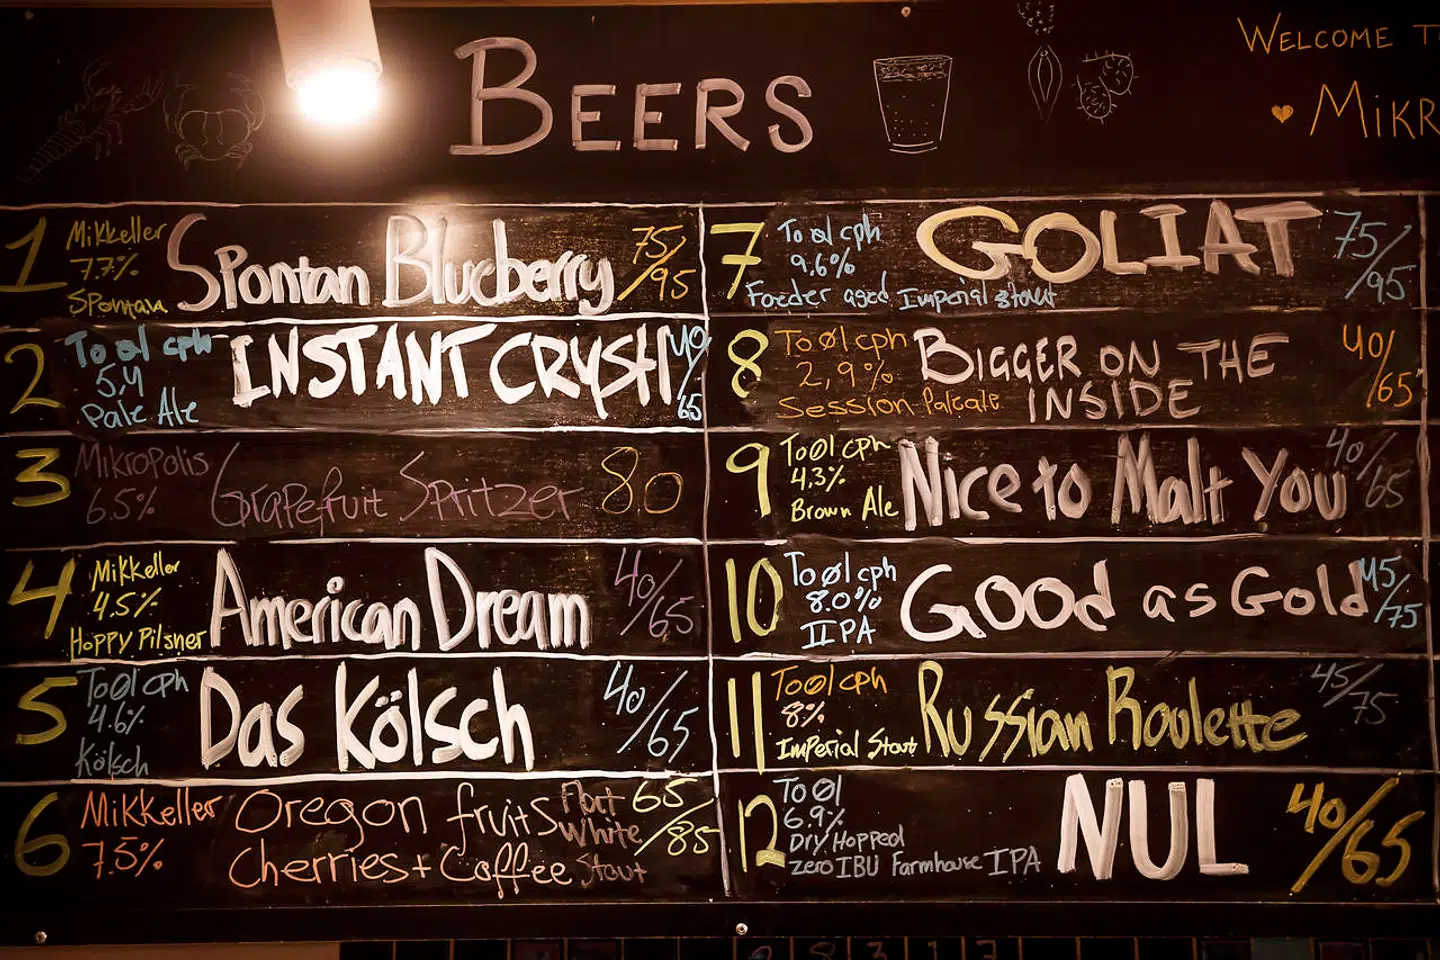 BEERS
WELCOME T
MIKR
1 Mikkeller Spontan Blueberry 75/95
7.7%
Spontana
2 To øl cph INSTANT CRUSH 40/65
5,4
Pale Ale
3 Mikropolis Grapefruit Spritzer 80
6.5%
4 Mikkeller American Dream 40/65
4.5%
Hoppy Pilsner
5 To Øl cph Das Kölsch 40/65
4.6%
Kölsch
6 Mikkeller Oregon fruits Flat White Stout 65/85
7.5% Cherries + Coffee
7 To øl cph GOLIAT 75/95
9.6%
Foeder aged Imperial stout
8 To Øl cph BIGGER ON THE 40/65
2,9% INSIDE
Session Paleale
9 To Øl cph Nice to Malt You 40/65
4.3%
Brown Ale
10 To Øl cph Good as Gold 45/75
8.0%
IIPA
11 To Øl cph Russian Roulette 45/75
8%
Imperial Stout
12 To Øl NUL 40/65
6.9%
Dry Hopped
zero IBU Farmhouse IPA